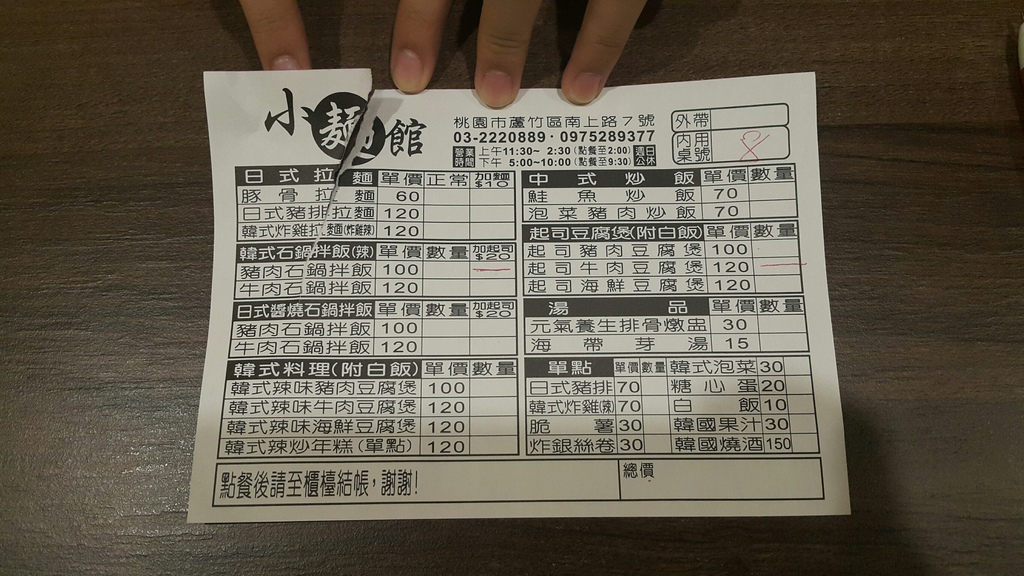 小麵館
桃園市蘆竹區南上路7號
03-2220889・0975289377
營業時間 上午11:30~ 2:30(點餐至2:00) 週日公休
下午 5:00~10:00(點餐至9:30)
外帶
內用桌號 8
日式拉麵 單價 正常 加麵$10
豚骨拉麵 60
日式豬排拉麵 120
韓式炸雞拉麵(炸雞辣) 120
韓式石鍋拌飯(辣) 單價 數量 加起司$20
豬肉石鍋拌飯 100
牛肉石鍋拌飯 120
日式醬燒石鍋拌飯 單價 數量 加起司$20
豬肉石鍋拌飯 100
牛肉石鍋拌飯 120
韓式料理(附白飯) 單價 數量
韓式辣味豬肉豆腐煲 100
韓式辣味牛肉豆腐煲 120
韓式辣味海鮮豆腐煲 120
韓式辣炒年糕(單點) 120
中式炒飯 單價 數量
鮭魚炒飯 70
泡菜豬肉炒飯 70
起司豆腐煲(附白飯) 單價 數量
起司豬肉豆腐煲 100
起司牛肉豆腐煲 120
起司海鮮豆腐煲 120
湯品 單價 數量
元氣養生排骨燉盅 30
海帶芽湯 15
單點 單價 數量 韓式泡菜 30
日式豬排 70 糖心蛋 20
韓式炸雞(辣) 70 白飯 10
脆薯 30 韓國果汁 30
炸銀絲卷 30 韓國燒酒 150
點餐後請至櫃檯結帳,謝謝!
總價